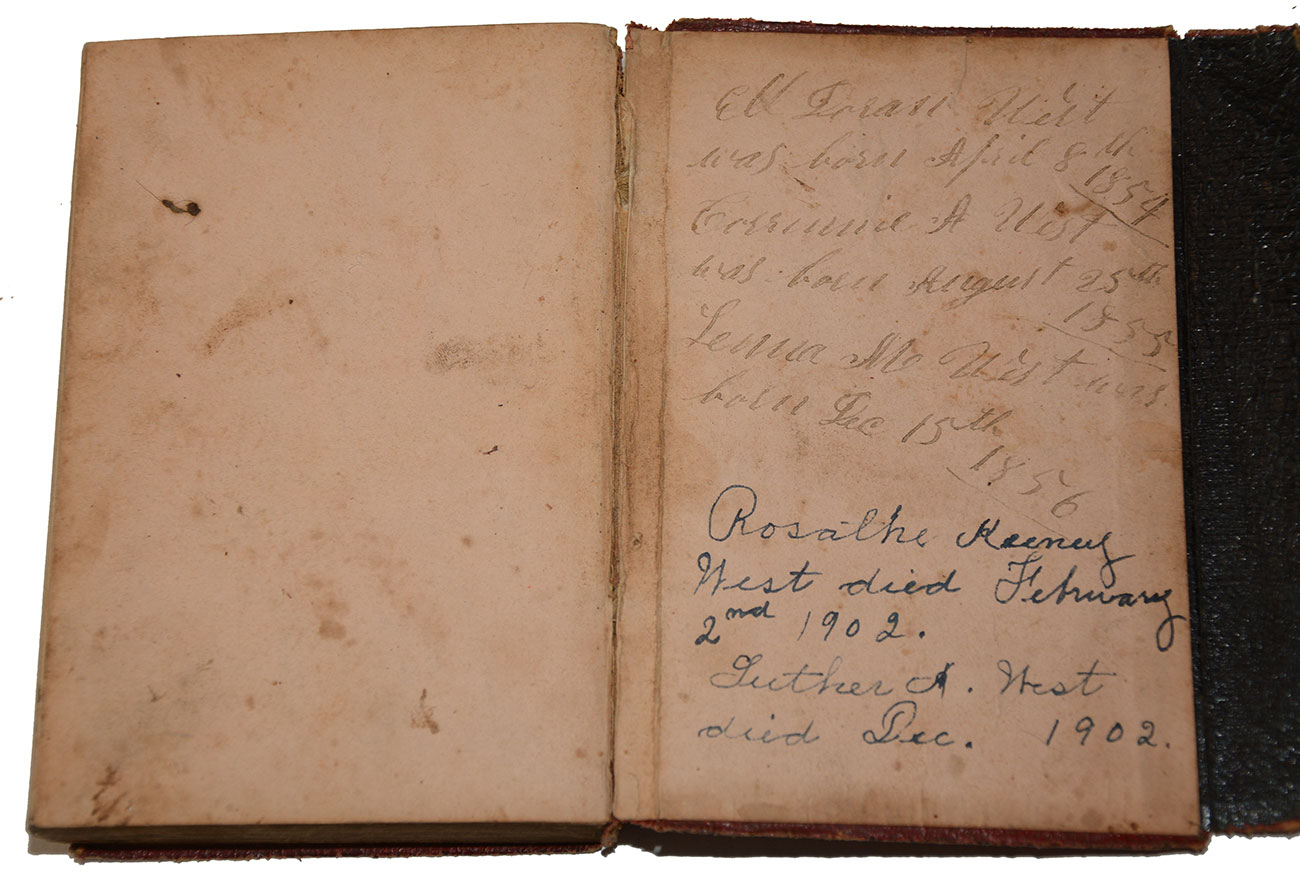 Loran West
was born April 8th
1854
Corrinnie A West
was born August 25th
1855
Lenna Mc West was
born Dec 15th
1856
Rosalhe Keeney
West died February
2nd 1902.
Luther A. West
died Dec. 1902.